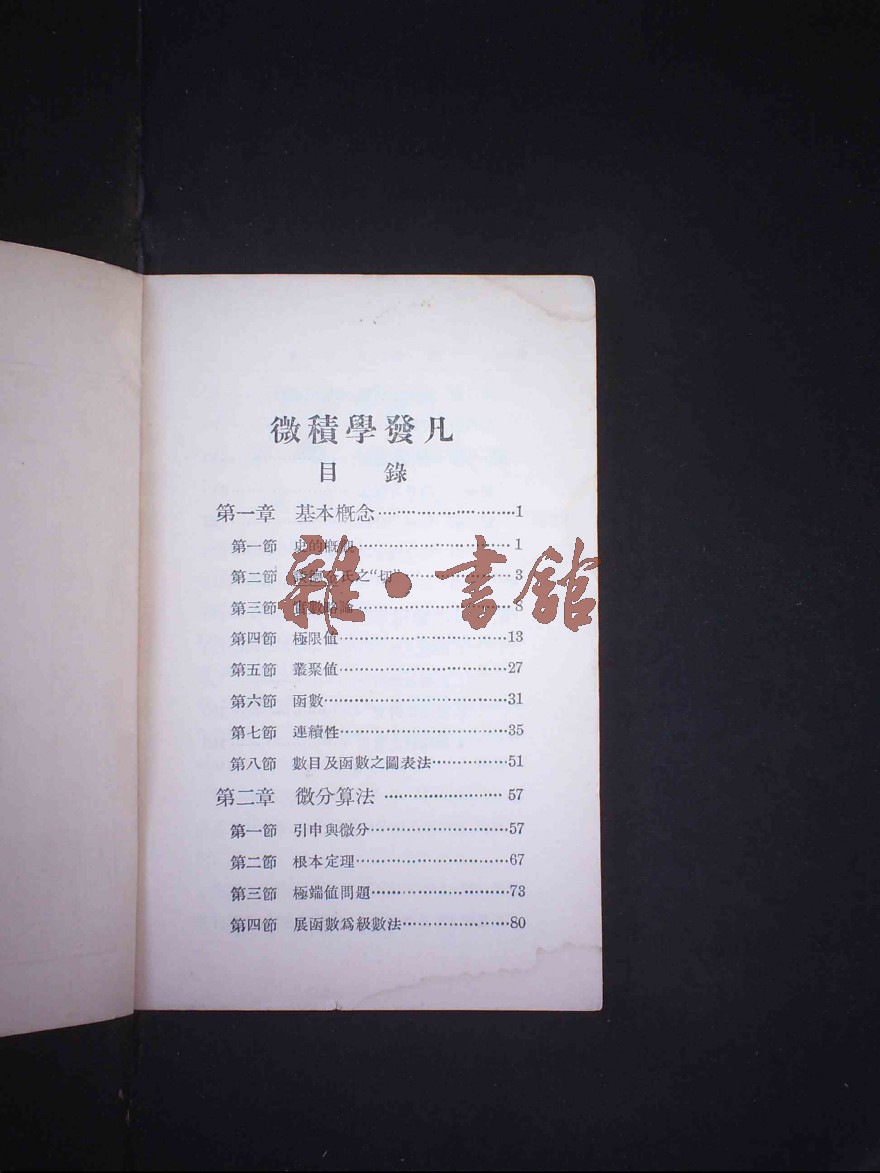 微積學發凡
目錄
第一章 基本概念……………………1
第一節 史的概……………………1
第二節 氏之“切”……………………3
第三節 數略論……………………8
第四節 極限值……………………13
第五節 叢聚值……………………27
第六節 函數……………………31
第七節 連續性……………………35
第八節 數目及函數之圖表法……………51
第二章 微分算法……………………57
第一節 引申與微分……………………57
第二節 根本定理……………………67
第三節 極端值問題……………………73
第四節 展函數爲級數法……………………80
雜·書館